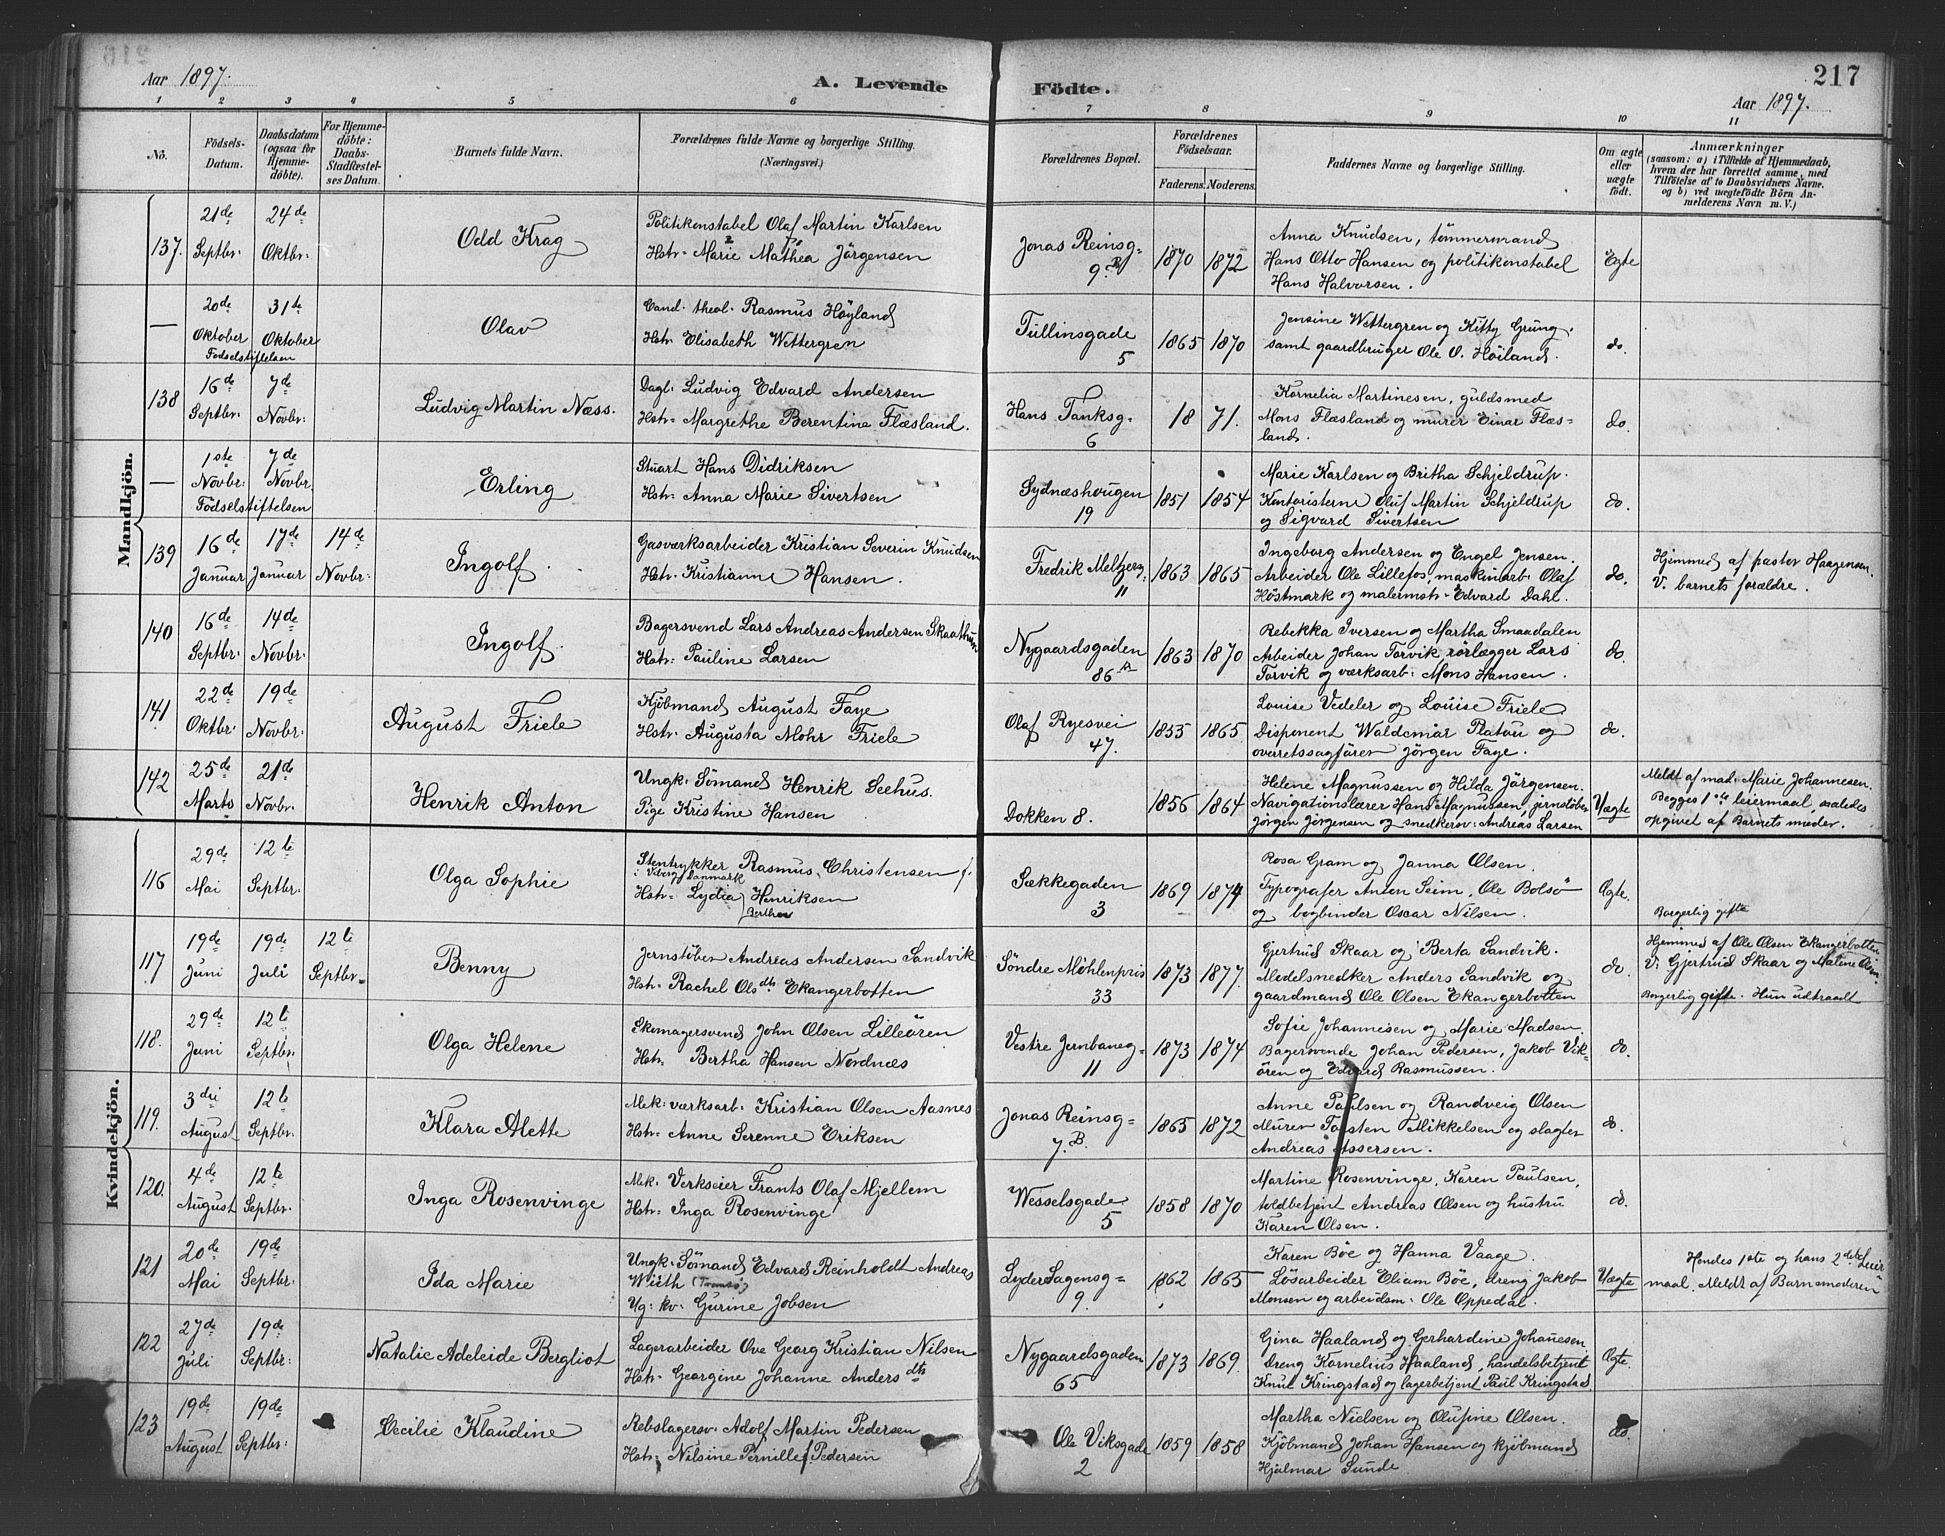 217
Aar 1897.
A. Levende Födte.
Aar 1897.
1 2 3 4 5 6 7 8 9 10 11
No.
Födsels-Datum.
Daabsdatum (ogsaa for Hjemme-döbte).
For Hjemme-döbte: Daabs-Stadfæstel-ses Datum.
Barnets fulde Navn.
Forældrenes fulde Navne og borgerlige Stilling. (Næringsvei.)
Forældrenes Bopæl.
Forældrenes Födselsaar.
Faderens. Moderens.
Faddernes Navne og borgerlige Stilling.
Om ægte eller uægte födt.
Anmærkninger
(saasom: a) i Tilfælde af Hjemmedaab,
hvem der har forrettet samme, med
Tilföielse af to Daabsvidners Navne,
og b) ved uægtefödte Börn An-
melderens Navn m. V.)
Mandkjön.
137. 21de Septbr: 24de Oktbr: Odd Krag
Politikonstabel Olaf Martin Karlsen
Hstr: Marie Mathea Jörgensen
Jonas Reinsg= 9.B 1870 1872
Anna Knudsen, tömmermand
Hans Otto Hansen og politikonstabel
Hans Halvorsen.
Egte
— 20de Oktober 31te Oktober
Födselstiftelsen
Olav
Cand. theol. Rasmus Höyland
Hstr: Elisabeth Wettergren
Tullinsgade 5 1865 1870
Jensine Wettergren og Kitty Grung.
samt gaardbruger Ole O. Höiland.
do.
138 16de Septbr: 7de Novbr: Ludvig Martin Næss.
Dagl: Ludvig Edvard Andersen
Hstr: Margrethe Berentine Flæsland.
Hans Tanksg= 6 18 71.
Kornelia Martinesen, guldsmed
Mons Flæsland og murer Einar Flæs-
land.
do.
— 1ste Novbr: 7de Novbr.
Födselstiftelsen
Erling
Stuart Hans Didriksen
Hstr: Anna Marie Sivertsen
Sydnæshougen 19 1851 1854
Marie Karlsen og Britha Schjeldrup.
Kontoristerne Oluf Martin Schjeldrup
og Sigvard Sivertsen
do.
139 16de Januar 17de Januar 14de Novbr: Ingolf.
Gasværksarbeider Kristian Severin Knudsen
Hstr: Kristianne Hansen.
Fredrik Meltzersg= 11 1863 1865
Ingeborg Andersen og Engel Jensen.
Arbeider Ole Lillefos, maskinarb: Olaf
Höstmark og malermstr. Edvard Dahl.
do.
Hjemmed af pastor Haagensen.
V. barnets forældre.
140 16de Septbr: 14de Novbr: Ingolf.
Bagersvend Lars Andreas Andersen Skaathun
Hstr: Pauline Larsen
Nygaardsgaden 86 A 1863 1870
Rebekka Iversen og Martha Smaadalen
Arbeider Johan Torvik rörlægger Lars
Torvik og værksarb: Mons Hansen.
do.
141 22de Oktbr: 19de Novbr: August Friele
Kjöbmand August Faye
Hstr: Augusta Mohr Friele
Olaf Ryesvei 47. 1855 1865
Louise Vedeler og Louise Friele
Disponent Waldemar Platou og
overretssagförer Jörgen Faye.
do.
142 25de Marts 21de Novbr: Henrik Anton
Ungk: Sömand Henrik Seehus.
Pige Kristine Hansen
Dokken 8. 1856 1864
Helene Magnussen og Hilda Jörgensen.
Navigationslærer Hans Magnussen, jernstöber
Jörgen Jörgensen og snedkersv: Andreas Larsen
Uægte
Meldt af mad. Marie Johannesen.
Begges 1ste leiermaal, saaledes
opgivet af Barnets moder.
Kvindekjön.
116 29de Mai 12te Septbr: Olga Sophie
Stentrykker Rasmus Christensen f.
i Viborg Danmark
Hstr: Lydia Henriksen
Berthea
Sækkegaden 3 1869 1874
Rosa Gram og Janna Olsen.
Typografer Anton Seim, Ole Bolsö
og bogbinder Oscar Nilsen.
Egte.
Borgerlig gifte
117. 19de Juni 19de Juli 12te Septbr= Benny
Jernstöber Andreas Andersen Sandvik
Hstr: Rachel Olsdtr Ekangerbotten
Söndre Möhlenpris 33 1873 1877.
Gjertrud Skaar og Berta Sandvik.
Medelsnedker Anders Sandvik og
gaardmand Ole Olsen Ekangerbotten
do.
Hjemmed af Ole Olsen Ekangerbotten
V. Gjertrud Skaar og Maline Olsen.
Borgerlig gifte. Hun udtraadt
118. 29de Juni 12te Septbr: Olga Helene
Skomagersvend John Olsen Lilleören
Hstr: Bertha Hansen Nordnæs
Vestre Jernbaneg= 11 1873 1874
Sofie Johannesen og Marie Madsen.
Bagersvende Johan Pedersen, Jakob Vik-
ören og Edvard Rasmussen.
do.
119. 3die August 12te Septbr: Klara Alette
Mek: værksarb. Kristian Olsen Aasnes
Hstr: Anne Serenne Eriksen
Jonas Reinsg= 7.B. 1865 1872
Anne Paulsen og Randveig Olsen
Murer Torsten Mikkelsen og slagter
Andreas Assersen.
do.
120. 4de August 12te Septbr. Inga Rosenvinge
Mek: Verkseier Frants Olaf Mjellem
Hstr: Inga Rosenvinge
Wesselsgade 5 1858 1870
Martine Rosenvinge, Karen Paulsen,
toldbetjent Andreas Olsen og hustru
Karen Olsen.
do.
121 20de Mai 19de Septbr: Ida Marie
Ungk: Sömand Edvard Reinholdt Andreas
Wiith (Tromsö)
Ug: kv: Gurine Jobsen
Lyder Sagensg= 9. 1862 1865
Karen Böe og Hanna Vaage.
Lösarbeider Eliam Böe, dreng Jakob
Monsen og arbeidsm: Ole Oppedal.
Uægte
Hendes 1ste og hans 2det Leier
maal. Meldt af Barnemoderen
122 27de Juli 19de Septbr: Natalie Adeleide Bergliot
Lagerarbeider Ove Georg Kristian Nilsen
Hstr: Georgine Johanne Andersdtr
Nygaardsgaden 65 1873 1869.
Gina Haaland og Gerhardine Johanesen.
Dreng Kornelius Haaland, handelsbetjent
Knut Kringstad og lagerbetjent Paul Kringstad
Egte.
123 19de August 19de Septbr: Cecilie Klaudine
Rebslagersv: Adolf Martin Pedersen
Hstr: Nilsine Pernille Pedersen
Ole Viksgade 2 1859 1858
Martha Nielsen og Olufine Olsen.
Kjöbmand Johan Hansen og kjöbmand
Hjalmar Sunde
do.